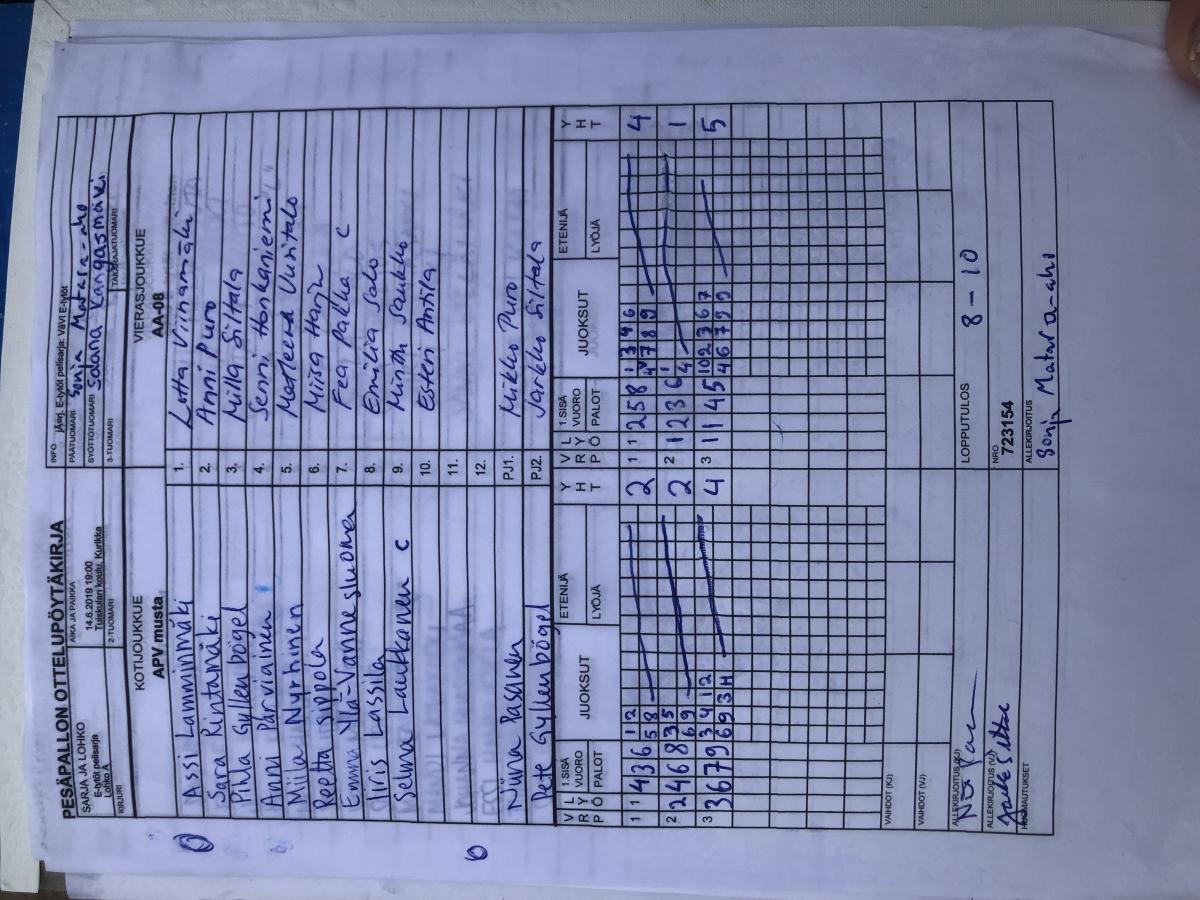 PESÄPALLON OTTELUPÖYTÄKIRJA
SARJA JA LOHKO
E-tytöt pelisarja
Lohko A
AIKA JA PAIKKA
14.6.2019 19:00
Tuiskulan koulu, Kurikka
INFO Järj. E-tytöt pelisarja: Vävi E-tytöt
PÄÄTUOMARI Sonja Matara-aho
SYÖTTÖTUOMARI Salana Kangasmäki
KIRJURI 2-TUOMARI 3-TUOMARI TAKARAJATUOMARI
KOTIJOUKKUE VIERASJOUKKUE
APV musta AA-08
Assi Lamminmäki 1. Lotta Viinamäki
Sara Rintamäki 2. Anni Puro
Pihla Gyllenbögel 3. Milla Siltala
Anni Parviainen 4. Senni Honkaniemi
Miila Nyrhinen 5. Matleena Uusitalo
Reetta Sippola 6. Miisa Harju
Emma Ylä-Vannesluoma 7. Fea Palkka C
Iiris Lassila 8. Emilia Salo
Selma Lautkanen C 9. Minttu Saukko
10. Esteri Antila
11.
12.
Niina Pasanen PJ1. Mikko Puro
Pete Gyllenbögel PJ2. Jarkko Siltala
V R P L Y Ö 1.SISÄ VUORO PALOT JUOKSUT ETENIJÄ LYÖJÄ Y H T V R P L Y Ö 1.SISÄ VUORO PALOT JUOKSUT ETENIJÄ LYÖJÄ Y H T
1 1 4 3 6 1 2 2 1 1 2 5 8 1 3 4 6 4
5 8 4 7 8 9
2 2 4 6 8 3 5 2 2 1 2 3 6 1 1
6 9 4
3 3 6 7 9 3 4 12 4 3 1 1 4 5 10 2 3 6 7 5
6 9 3 H 4 6 7 9 9
VAIHDOT (KJ)
VAIHDOT (VJ)
ALLEKIRJOITUS (KJ) LOPPUTULOS 8 - 10
ALLEKIRJOITUS (VJ) NRO
723154
HUOMAUTUKSET ALLEKIRJOITUS
Sonja Matara-aho